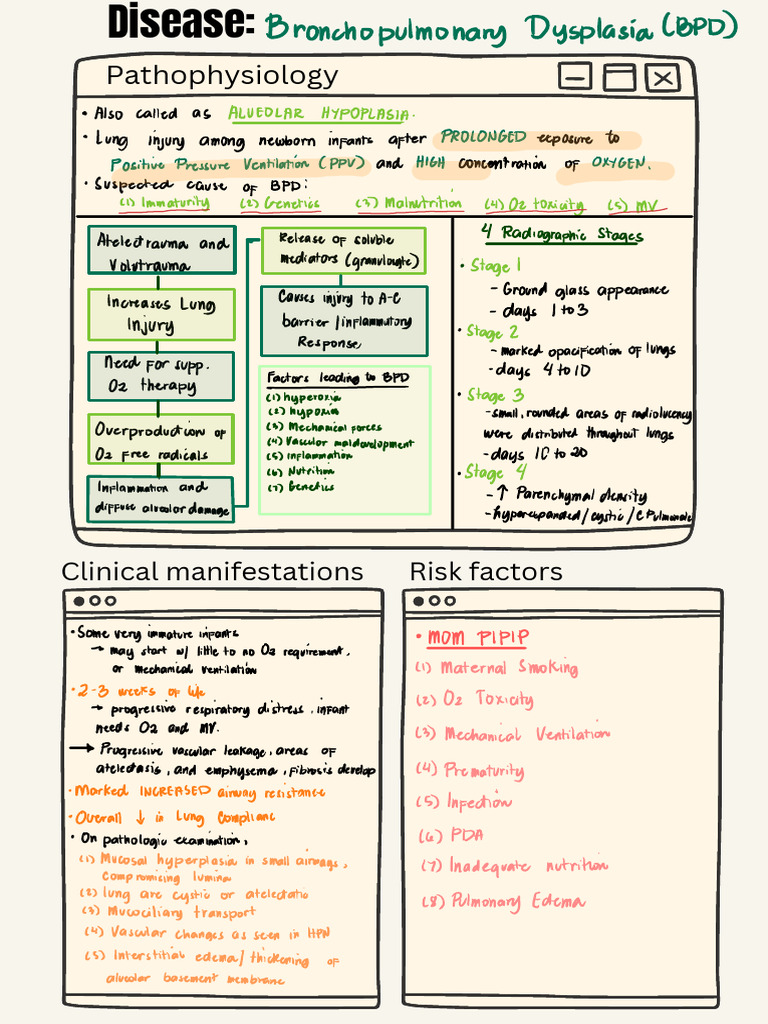 Disease: Bronchopulmonary Dysplasia (BPD)
Pathophysiology
• Also called as ALVEOLAR HYPOPLASIA.
• Lung injury among newborn infants after PROLONGED exposure to
Positive Pressure Ventilation (PPV) and HIGH concentration of OXYGEN.
• Suspected cause of BPD:
(1) Immaturity (2) Genetics (3) Malnutrition (4) O2 toxicity (5) MV
Atelectrauma and
Volutrauma
Increases Lung
Injury
Need for supp.
O2 therapy
Overproduction of
O2 free radicals
Inflammation and
diffuse alveolar damage
Release of soluble
mediators (granulocyte)
Causes injury to A-C
barrier / inflammatory
Response
Factors leading to BPD
(1) hyperoxia
(2) hypoxia
(3) Mechanical forces
(4) Vascular maldevelopment
(5) Inflammation
(6) Nutrition
(7) Genetics
4 Radiographic Stages
• Stage 1
- Ground glass appearance
- days 1 to 3
• Stage 2
- marked opacification of lungs
- days 4 to 10
• Stage 3
- small, rounded areas of radiolucency
were distributed throughout lungs
- days 10 to 20
• Stage 4
- ↑ Parenchymal density
- hyperexpanded / cystic / C Pulmonale
Clinical manifestations
• Some very immature infants
→ may start w/ little to no O2 requirement,
or mechanical ventilation
• 2-3 weeks of life
→ progressive respiratory distress, infant
needs O2 and MV.
→ Progressive vascular leakage, areas of
atelectasis, and emphysema, fibrosis develop
• Marked INCREASED airway resistance
• Overall ↓ in Lung Complianc
• On pathologic examination,
(1) Mucosal hyperplasia in small airways,
compromising lumina
(2) lung are cystic or atelectatic
(3) Mucociliary transport
(4) Vascular changes as seen in HPN
(5) Interstitial edema / thickening of
alveolar basement membrane
Risk factors
• MOM PIPIP
(1) Maternal Smoking
(2) O2 Toxicity
(3) Mechanical Ventilation
(4) Prematurity
(5) Infection
(6) PDA
(7) Inadequate nutrition
(8) Pulmonary Edema